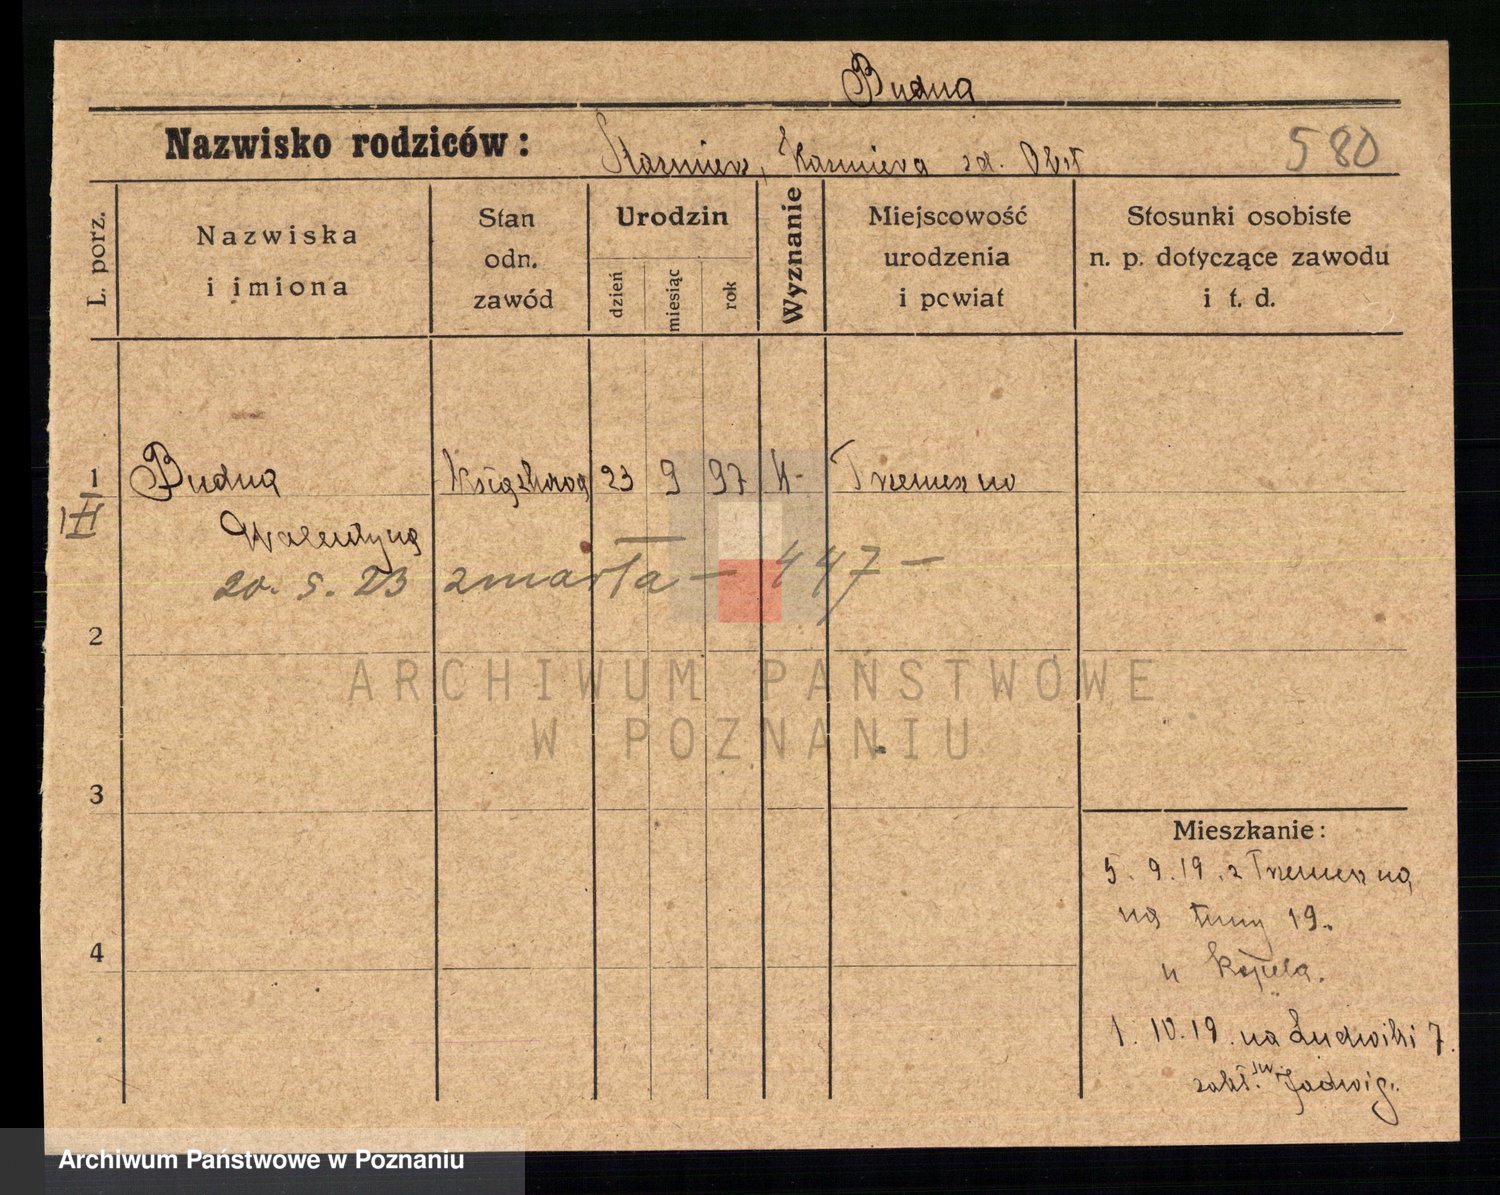 Budna
Nazwisko rodziców: Kazmiera 580
L. porz.
Nazwiska
i imiona
Stan
odn.
zawód
Urodzin
dzień
miesiąc
rok
Wyznanie
Miejscowość
urodzenia
i powiat
Stosunki osobiste
n. p. dotyczące zawodu
i t. d.
1 Budna 23 9 97 k- Trzemeszno
II
Walentyna
20. 5. 23 zmarła – 447 –
2
ARCHIWUM PAŃSTWOWE
W POZNANIU
3
4
Mieszkanie:
5. 9. 19. z Trzemeszna
na 19.
u
1. 10. 19. na Ludwiki 7.
zakł. św. Jadwig.
Archiwum Państwowe w Poznaniu